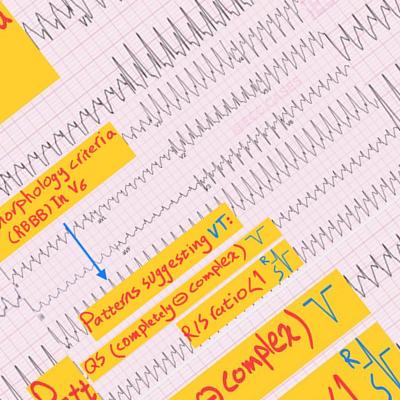 Morphology criteria
(RBBB) In V6
Patterns suggesting VT:
QS (completely ⊖ complex)
R/S ratio<1 R S
⊖ complex)
<1 R S
Patt